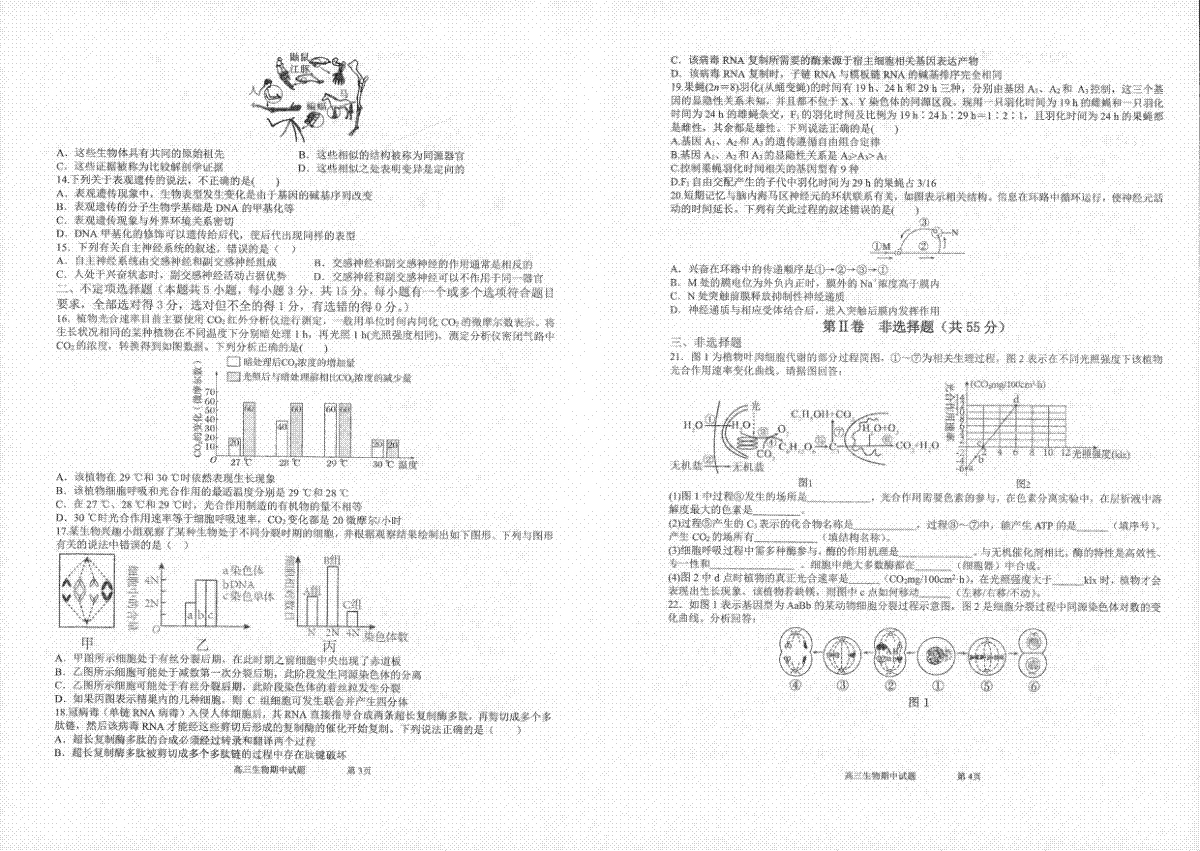 鼬鼠
江豚
人
马
蝙蝠
A．这些生物体具有共同的原始祖先 B．这些相似的结构被称为同源器官
C．这些证据被称为比较解剖学证据 D．这些相似之处表明变异是定向的
14.下列关于表观遗传的说法，不正确的是( )
A．表观遗传现象中，生物表型发生变化是由于基因的碱基序列改变
B．表观遗传的分子生物学基础是 DNA 的甲基化等
C．表观遗传现象与外界环境关系密切
D．DNA 甲基化的修饰可以遗传给后代，使后代出现同样的表型
15．下列有关自主神经系统的叙述，错误的是（ ）
A．自主神经系统由交感神经和副交感神经组成 B．交感神经和副交感神经的作用通常是相反的
C．人处于兴奋状态时，副交感神经活动占据优势 D．交感神经和副交感神经可以不作用于同一器官
二、不定项选择题（本题共 5 小题，每小题 3 分，共 15 分。每小题有一个或多个选项符合题目
要求，全部选对得 3 分，选对但不全的得 1 分，有选错的得 0 分。）
16．植物光合速率目前主要使用 CO₂红外分析仪进行测定，一般用单位时间内同化 CO₂的微摩尔数表示。将
生长状况相同的某种植物在不同温度下分别暗处理 1 h，再光照 1 h(光照强度相同)，测定分析仪密闭气路中
CO₂的浓度，转换得到如图数据。下列分析正确的是( )
暗处理后CO₂浓度的增加量
光照后与暗处理前相比CO₂浓度的减少量
CO₂的变化（微摩尔数）
70
60
50
40
30
20
10
O
20 60 40 60 60 60 20 20
27 ℃ 28 ℃ 29 ℃ 30 ℃ 温度
A．该植物在 29 ℃和 30 ℃时依然表现生长现象
B．该植物细胞呼吸和光合作用的最适温度分别是 29 ℃和 28 ℃
C．在 27 ℃、28 ℃和 29 ℃时，光合作用制造的有机物的量不相等
D．30 ℃时光合作用速率等于细胞呼吸速率，CO₂变化都是 20 微摩尔/小时
17.某生物兴趣小组观察了某种生物处于不同分裂时期的细胞，并根据观察结果绘制出如下图形。下列与图形
有关的说法中错误的是（ ）
细胞中的含量
4N
2N
O
a b c
a 染色体
b DNA
c 染色单体
细胞相对数目
A组
B组
C组
N 2N 4N 染色体数
甲 乙 丙
A．甲图所示细胞处于有丝分裂后期，在此时期之前细胞中央出现了赤道板
B．乙图所示细胞可能处于减数第一次分裂后期，此阶段发生同源染色体的分离
C．乙图所示细胞可能处于有丝分裂后期，此阶段染色体的着丝粒发生分裂
D．如果丙图表示精巢内的几种细胞，则 C 组细胞可发生联会并产生四分体
18.冠病毒（单链 RNA 病毒）入侵人体细胞后，其 RNA 直接指导合成两条超长复制酶多肽，再剪切成多个多
肽链，然后该病毒 RNA 才能经这些剪切后形成的复制酶的催化开始复制。下列说法正确的是（ ）
A．超长复制酶多肽的合成必须经过转录和翻译两个过程
B．超长复制酶多肽被剪切成多个多肽链的过程中存在肽键破坏
高三生物期中试题 第 3页
C．该病毒 RNA 复制所需要的酶来源于宿主细胞相关基因表达产物
D．该病毒 RNA 复制时，子链 RNA 与模板链 RNA 的碱基排序完全相同
19.果蝇(2n＝8)羽化(从蛹变蝇)的时间有 19 h、24 h 和 29 h 三种，分别由基因 A₁、A₂ 和 A₃控制，这三个基
因的显隐性关系未知，并且都不位于 X、Y 染色体的同源区段。现用一只羽化时间为 19 h 的雌蝇和一只羽化
时间为 24 h 的雄蝇杂交，F₁的羽化时间及比例为 19 h∶24 h∶29 h＝1∶2∶1，且羽化时间为 24 h 的果蝇都
是雌性，其余都是雄性。下列说法正确的是( )
A.基因 A₁、A₂ 和 A₃的遗传遵循自由组合定律
B.基因 A₁、A₂ 和 A₃的显隐性关系是 A₂>A₃> A₁
C.控制果蝇羽化时间相关的基因型有 9 种
D.F₁自由交配产生的子代中羽化时间为 29 h 的果蝇占 3/16
20.短期记忆与脑内海马区神经元的环状联系有关，如图表示相关结构。信息在环路中循环运行，使神经元活
动的时间延长。下列有关此过程的叙述错误的是( )
①M ② ③ N
A．兴奋在环路中的传递顺序是①→②→③→①
B．M 处的膜电位为外负内正时，膜外的 Na⁺浓度高于膜内
C．N 处突触前膜释放抑制性神经递质
D．神经递质与相应受体结合后，进入突触后膜内发挥作用
第Ⅱ卷 非选择题（共 55 分）
三、非选择题
21．图 1 为植物叶肉细胞代谢的部分过程简图，①～⑦为相关生理过程，图 2 表示在不同光照强度下该植物
光合作用速率变化曲线。请据图回答：
光
H₂O ① H₂O
③
O₂
④
CO₂
C₆H₁₂O₆ ⑤ C₃
C₂H₅OH+CO₂
⑦
H₂O+O₂
⑥ CO₂+H₂O
无机盐 ② 无机盐
图1
(CO₂mg/100cm²·h)
14
12
10
8
6
4
2
-2
-4
-6
a b c d
2 4 6 8 10 12 光照强度(klx)
图2
(1)图 1 中过程⑤发生的场所是____________，光合作用需要色素的参与，在色素分离实验中，在层析液中溶
解度最大的色素是__________。
(2)过程⑤产生的 C₃表示的化合物名称是____________，过程③～⑦中，能产生 ATP 的是______（填序号)，
产生 CO₂的场所有____________（填结构名称)。
(3)细胞呼吸过程中需多种酶参与，酶的作用机理是______________，与无机催化剂相比，酶的特性是高效性、
专一性和________________ 、细胞中绝大多数酶都在_______（细胞器）中合成。
(4)图 2 中 d 点时植物的真正光合速率是______（CO₂mg/100cm²·h)，在光照强度大于______klx 时，植物才会
表现出生长现象。该植物若缺镁，则图中 c 点如何移动______（左移/右移/不动)。
22．如图 1 表示基因型为 AaBb 的某动物细胞分裂过程示意图，图 2 是细胞分裂过程中同源染色体对数的变
化曲线。分析回答：
④ ③ ② ① ⑤ ⑥
图 1
高三生物期中试题 第 4页